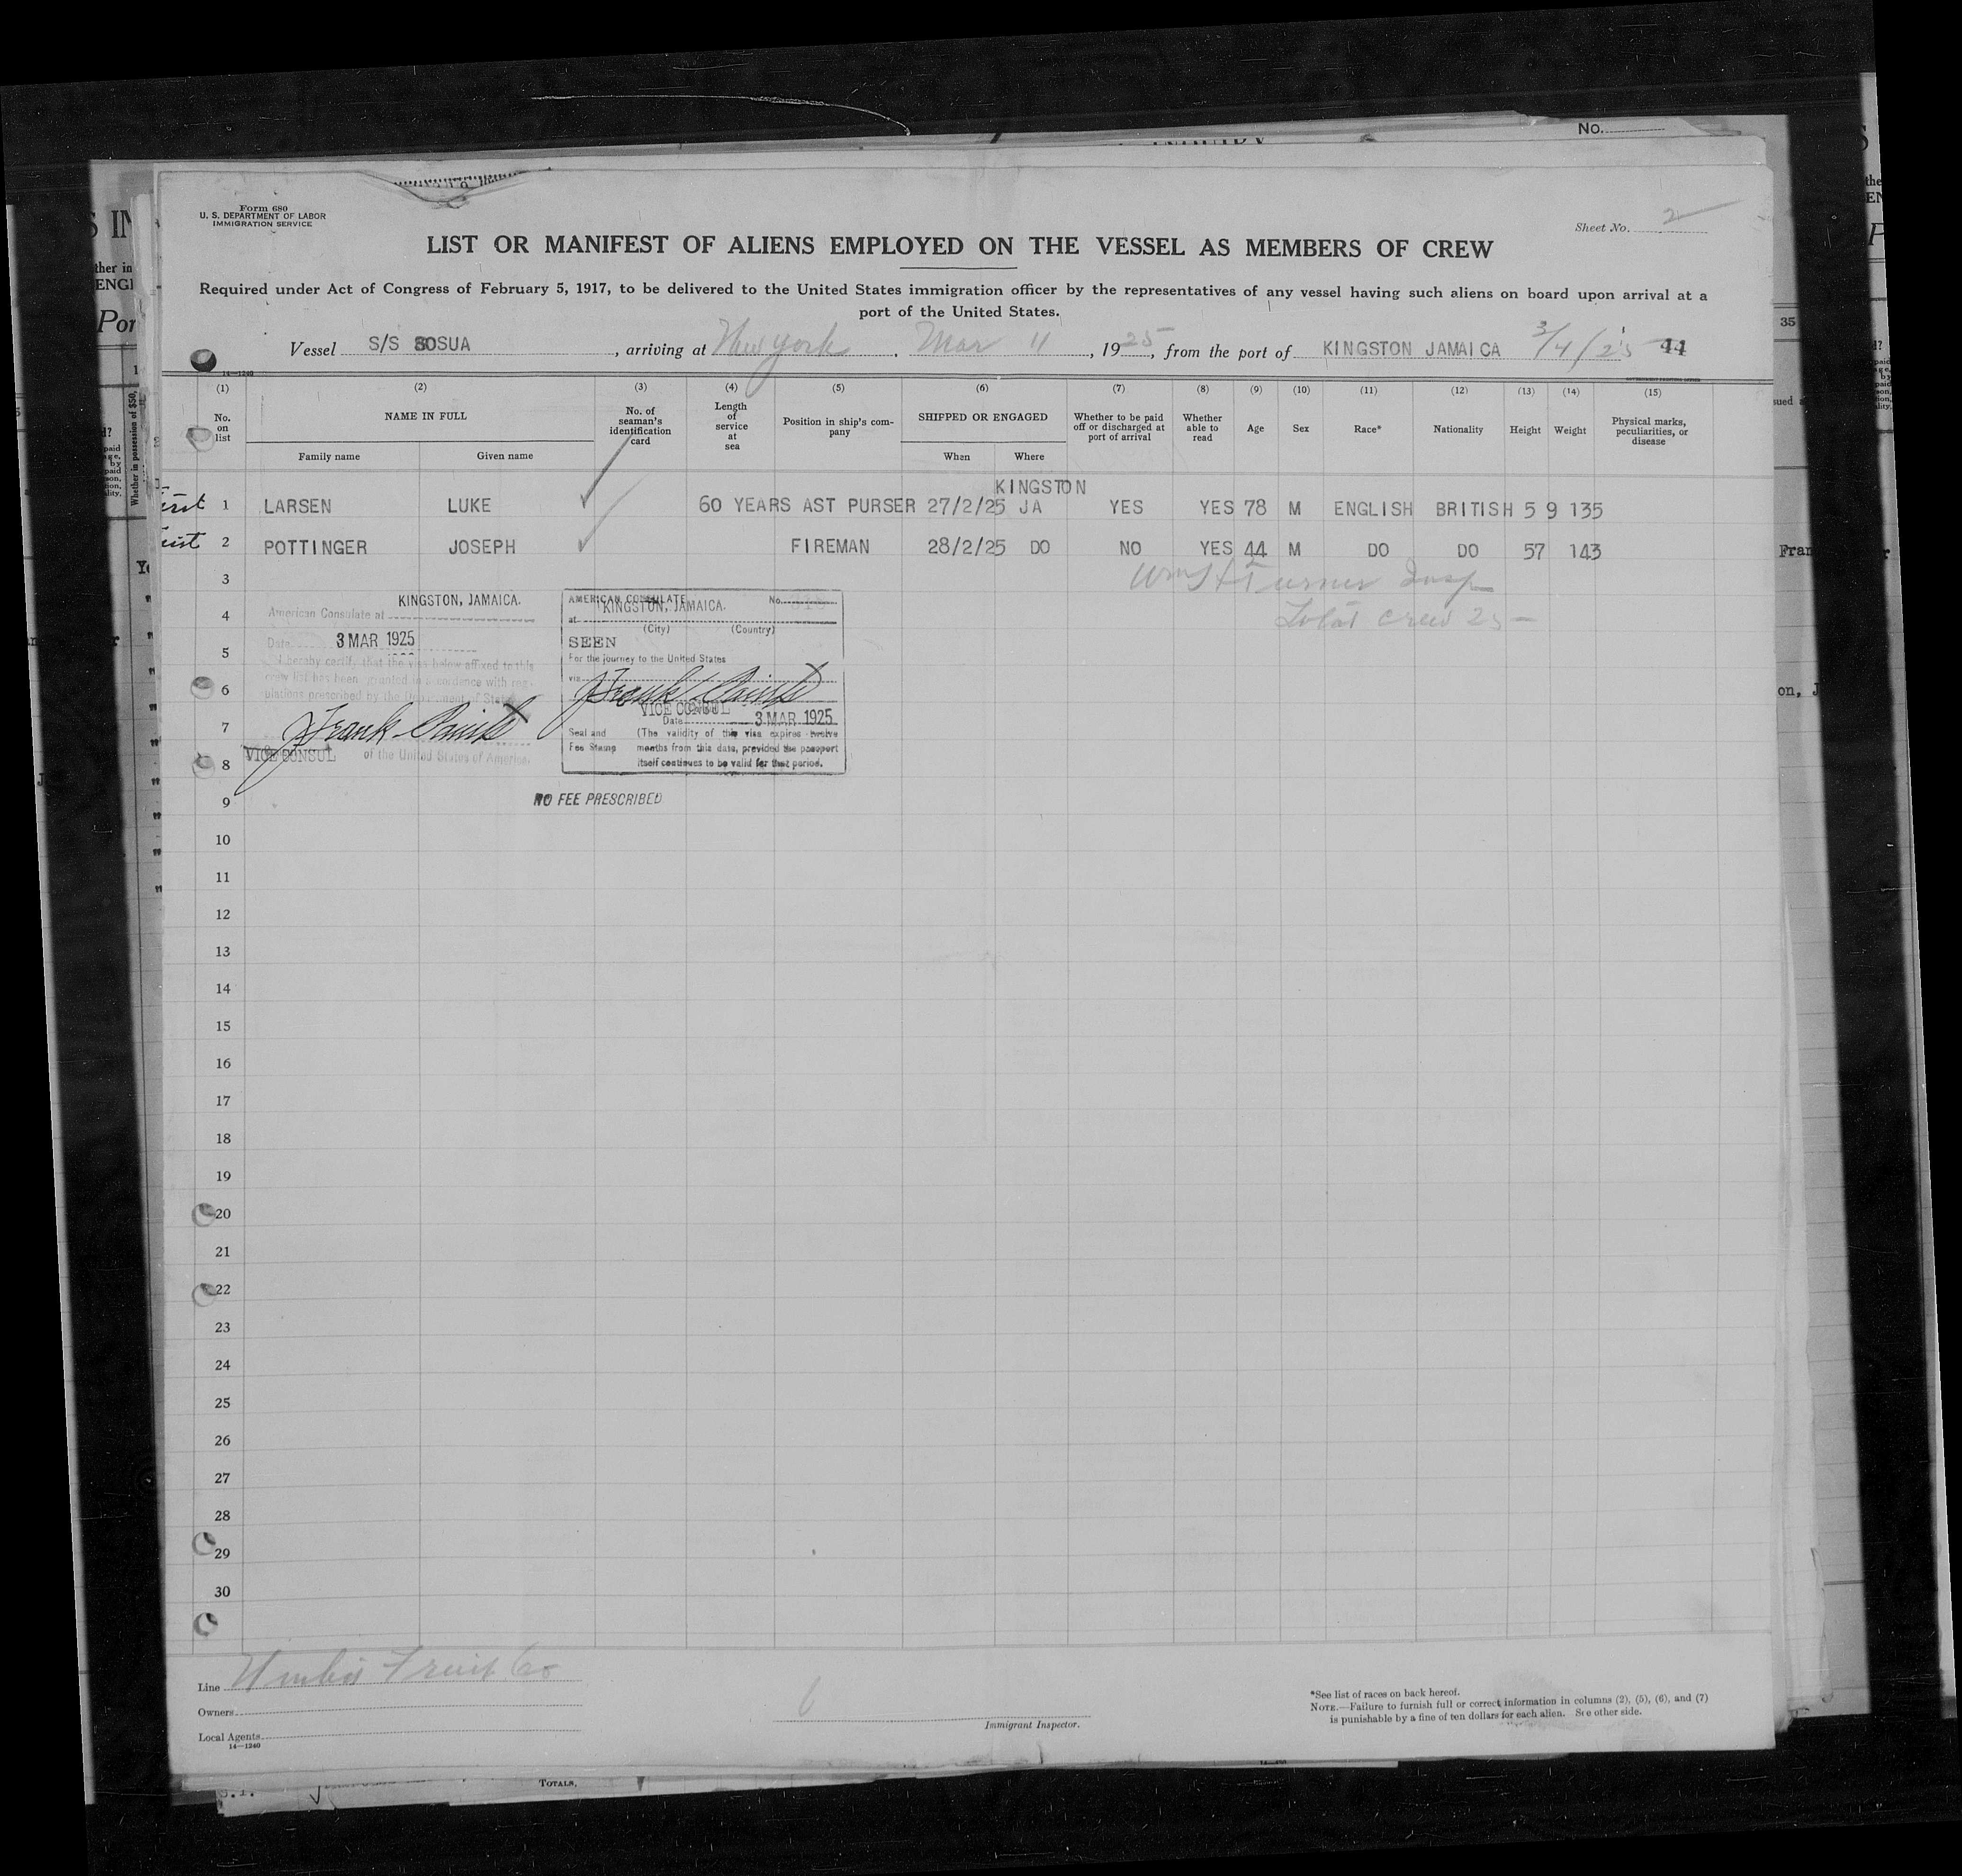 No.
Form 680
U. S. DEPARTMENT OF LABOR
IMMIGRATION SERVICE
Sheet No. 2
LIST OR MANIFEST OF ALIENS EMPLOYED ON THE VESSEL AS MEMBERS OF CREW
Required under Act of Congress of February 5, 1917, to be delivered to the United States immigration officer by the representatives of any vessel having such aliens on board upon arrival at a
port of the United States.
Vessel S/S SOSUA, arriving at New York, Mar 11, 1925, from the port of KINGSTON JAMAICA 3/4/25 44
14—1240
(1) (2) (3) (4) (5) (6) (7) (8) (9) (10) (11) (12) (13) (14) (15)
No. on list NAME IN FULL No. of seaman's identification card Length of service at sea Position in ship's company SHIPPED OR ENGAGED Whether to be paid off or discharged at port of arrival Whether able to read Age Sex Race* Nationality Height Weight Physical marks, peculiarities, or disease
Family name Given name When Where
KINGSTON
1 LARSEN LUKE 60 YEARS AST PURSER 27/2/25 JA YES YES 78 M ENGLISH BRITISH 5 9 135
2 POTTINGER JOSEPH FIREMAN 28/2/25 DO NO YES 44 M DO DO 57 143
3 Wm H Turner Insp
4 Total crew 25
KINGSTON, JAMAICA.
American Consulate at
Date 3 MAR 1925
I hereby certify that the visa below affixed to this
crew list has been granted in accordance with reg-
ulations prescribed by the Department of State
VICE CONSUL of the United States of America.
AMERICAN CONSULATE No.
at KINGSTON, JAMAICA.
(City) (Country)
SEEN
For the journey to the United States
via
VICE CONSUL
Date 3 MAR 1925
Seal and Fee Stamp (The validity of this visa expires twelve
months from this date, provided the passport
itself continues to be valid for that period.
NO FEE PRESCRIBED
5
6
7
8
9
10
11
12
13
14
15
16
17
18
19
20
21
22
23
24
25
26
27
28
29
30
Line Fruit Co
Owners
Local Agents
14—1240
Immigrant Inspector.
*See list of races on back hereof.
NOTE.—Failure to furnish full or correct information in columns (2), (5), (6), and (7)
is punishable by a fine of ten dollars for each alien. See other side.
TOTALS,